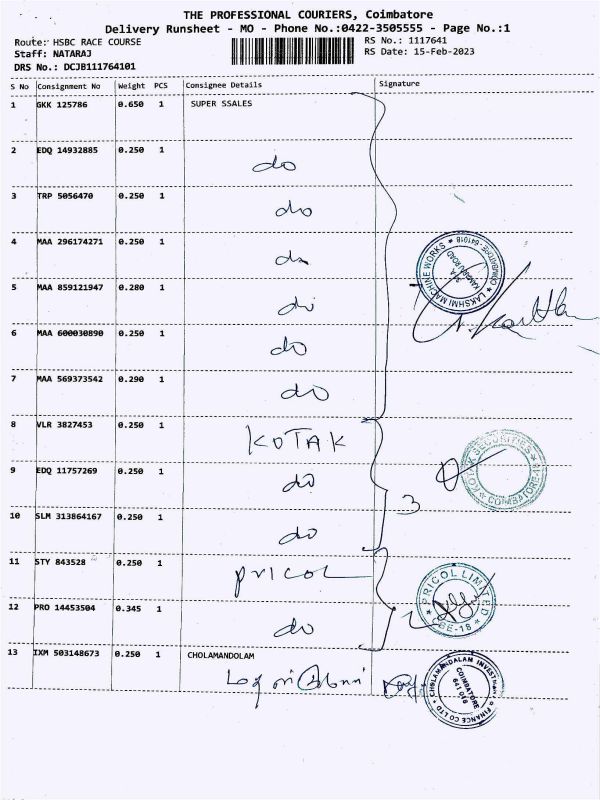 THE PROFESSIONAL COURIERS, Coimbatore
Delivery Runsheet - MO - Phone No.:0422-3505555 - Page No.:1
Route: HSBC RACE COURSE
RS No.: 1117641
Staff: NATARAJ
RS Date: 15-Feb-2023
DRS No.: DCJB111764101
S No Consignment No Weight PCS Consignee Details Signature
1 GKK 125786 0.650 1 SUPER SSALES
2 EDQ 14932885 0.250 1 do
3 TRP 5056470 0.250 1 do
4 MAA 296174271 0.250 1 do
LAKSHMI MACHINE WORKS * COIMBATORE-641018 *
5 MAA 859121947 0.280 1 do
6 MAA 600030890 0.250 1 do
7 MAA 569373542 0.290 1 do
8 VLR 3827453 0.250 1 KOTAK
9 EDQ 11757269 0.250 1 do
KOTAK SECURITIES * COIMBATORE-18 *
10 SLM 313864167 0.250 1 do
3
11 STY 843528 0.250 1 PRICOL
12 PRO 14453504 0.345 1 do
2
PRICOL LIMITED * CBE-18 *
13 IXM 503148673 0.250 1 CHOLAMANDOLAM
CHOLAMANDALAM INVESTMENT & FINANCE CO LTD *
COIMBATORE
641 018